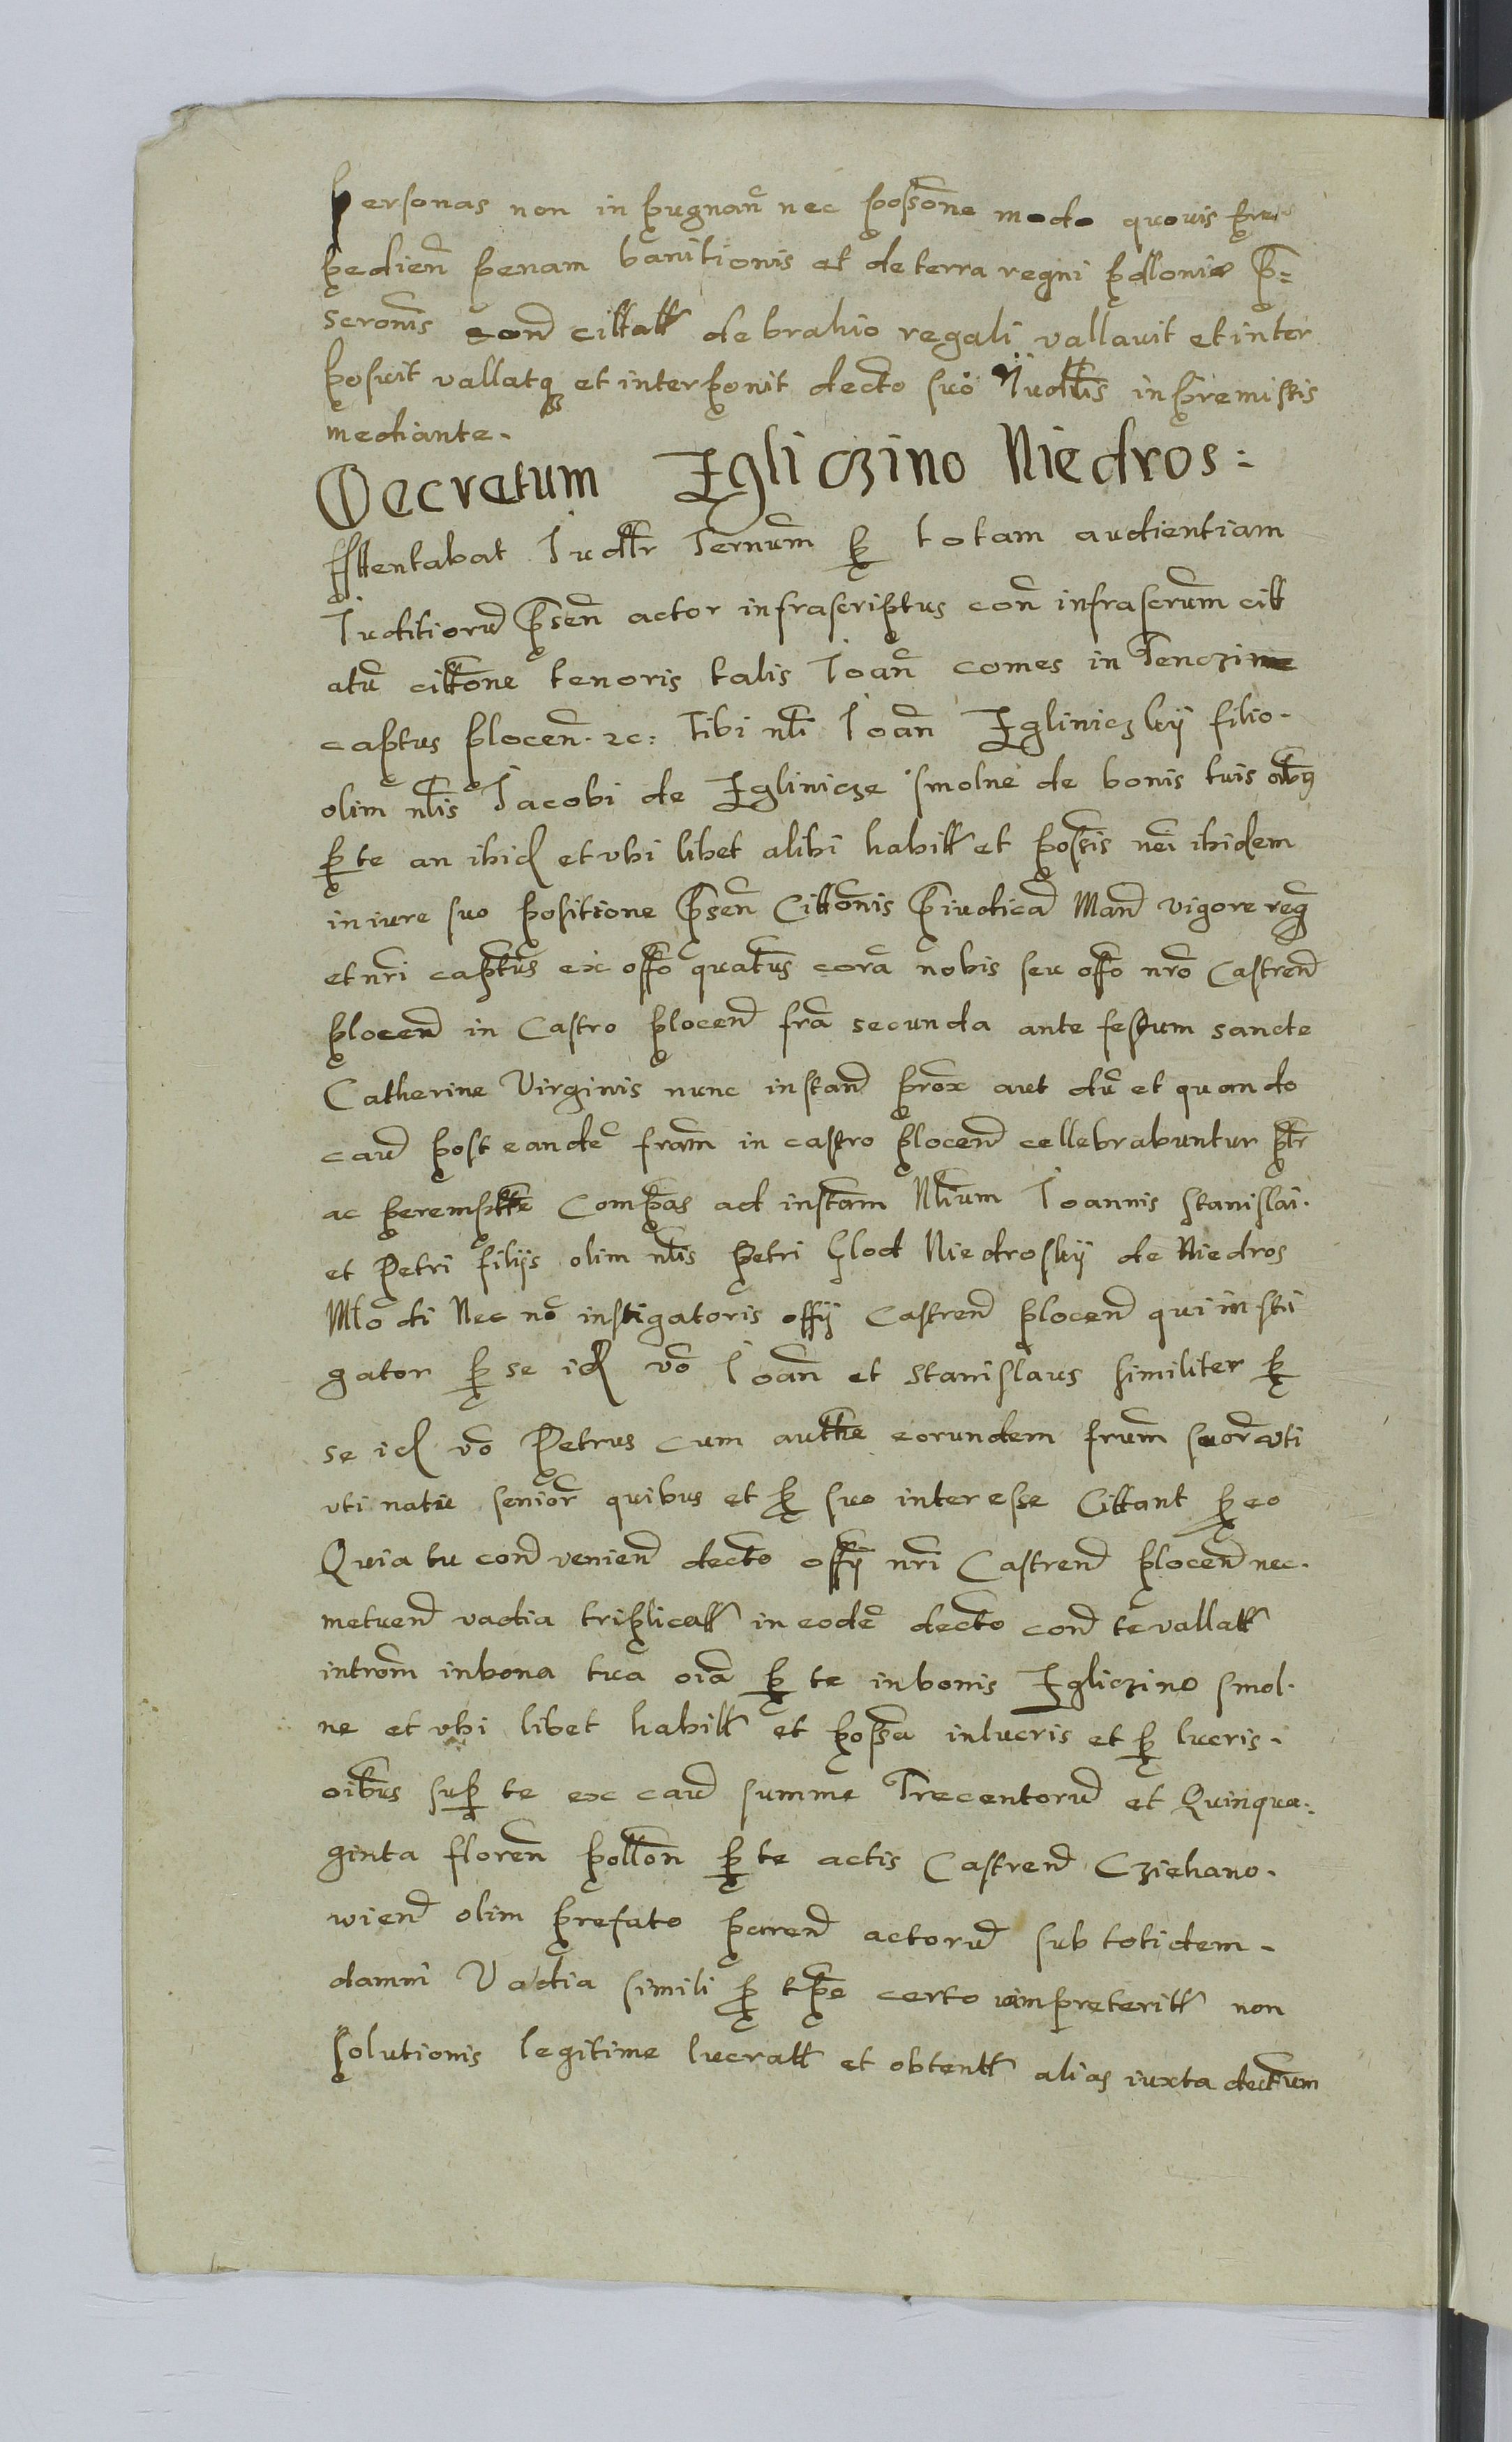 personas non in pugnan nec possone modo quovis pre
pedien penam banitionis et de terra regni pollonie p̄=
scronis con cittatt de brahio regali vallavit et inter
posuit vallatqꝫ et interponit decto suo Iudttis in premissis
mediante.
Decretum Igliczino Niedros:
Attentabat Iudttr Ternum ꝑ totam audientiam
Iuditioru p̄sen actor infrascriptus con infrascrum citt
atu cittone tenoris talis Ioan comes in Tenczine
captus plocen. ꝛc: Tibi nti Ioan Igliniczkij filio.
olim ntis Iacobi de Iglinicze smolne de bonis tuis oibꝫ
ꝑ te an ibid et vbi libet alibi habitt et possis nei ibidem
in iure suo positione p̄sen Cittonis p̄iudica Mand vigore reg
et nri captus ex offo quatus cora nobis seu offo nro Castren
plocen in Castro plocen fra secunda ante festum sancte
Catherine Virginis nunc instan prox aut du et quando
cau post eande fram in castro plocen cellebrabuntur ptr
ac peremptte Compas ad instam Ntium Ioannis Stanislai.
et Petri filijs olim ntis Petri Glod Niedroskij de Niedros
Mto di Nec no instigatoris offij Castren plocen qui insti
gator ꝑ se id vo Ioan et Stanislaus similiter ꝑ
se id vo Petrus cum autthe eorundem frum suor uti
vti natu senior quibus et ꝑ suo interesse Cittant ꝑ eo
Quia tu con venien decto offij nri Castren plocen nec.
metuen vadia triplicatt in eode decto con te vallatt
introm in bona tua oia ꝑ te in bonis Igliczino smol.
ne et vbi libet habitt et possa in lucris et ꝑ lucris.
oibus suꝑ te ex cau summe Trecentoru et Quinqua.
ginta floren pollon ꝑ te actis Castren Cziehano.
wien olim prefato paren actoru sub totidem.
damni Vadia simili ꝑ tpe certo iam preteritt non
solutionis legitime lucratt et obtentt alias iuxta dectum